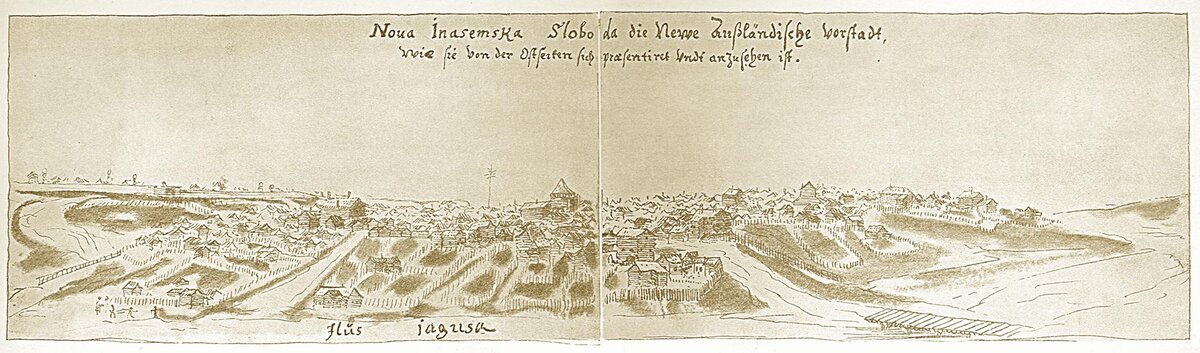 Noua Inasemska Sloboda die Newe Außländische vorstadt,
Wie sie von der Ostseiten sich præsentiret Undt anzusehen ist.
Flüs jagusa